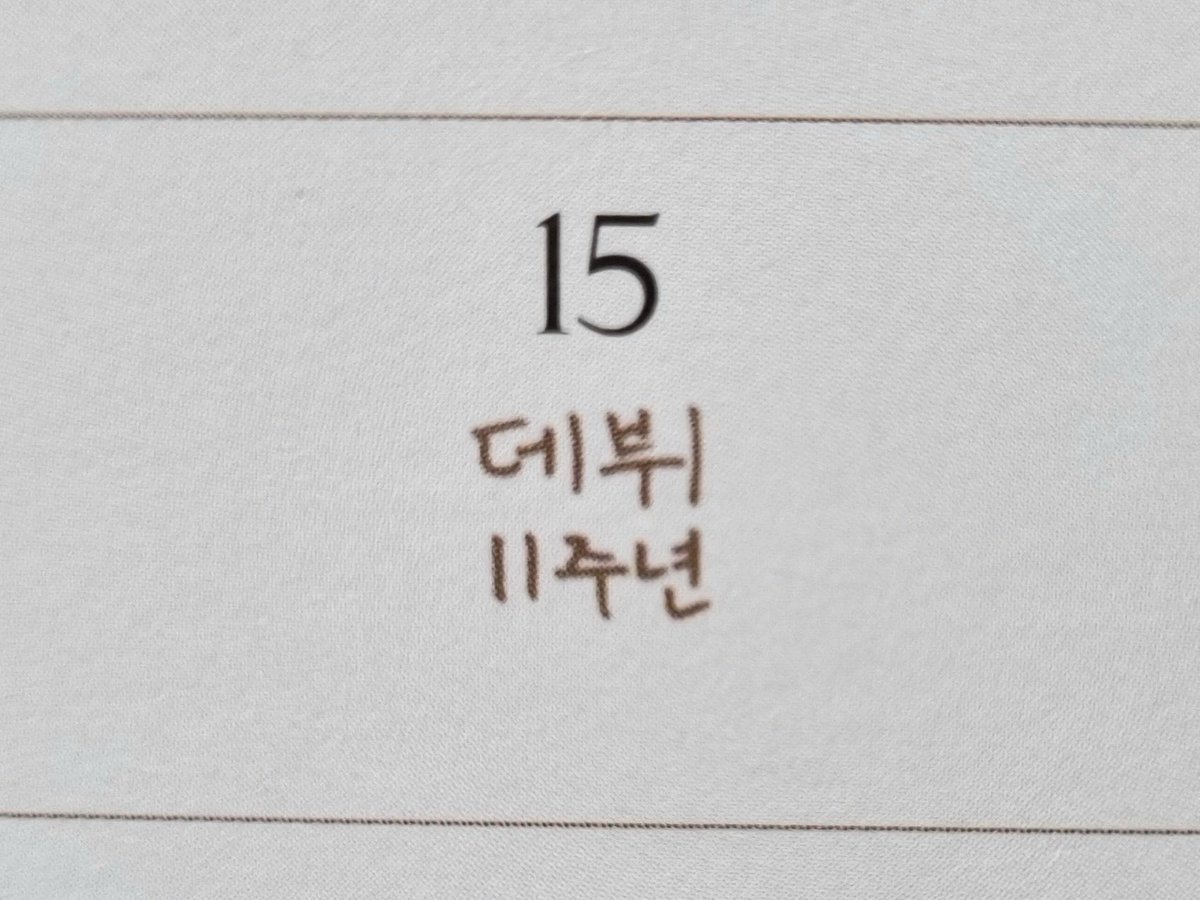 15
데뷔
11주년